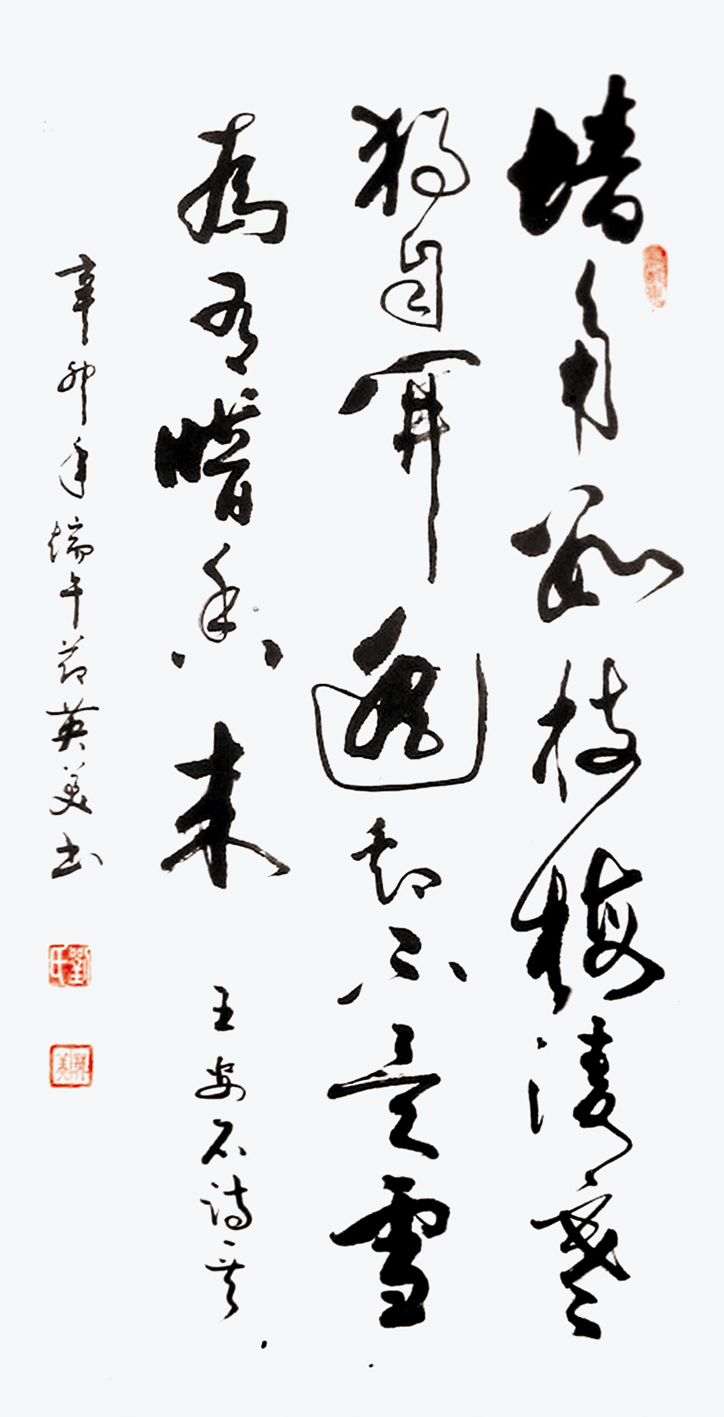 墙角數枝梅凌寒
独自開遥知不是雪
為有暗香来 王安石诗一首
辛卯年端午节英美书
劉氏